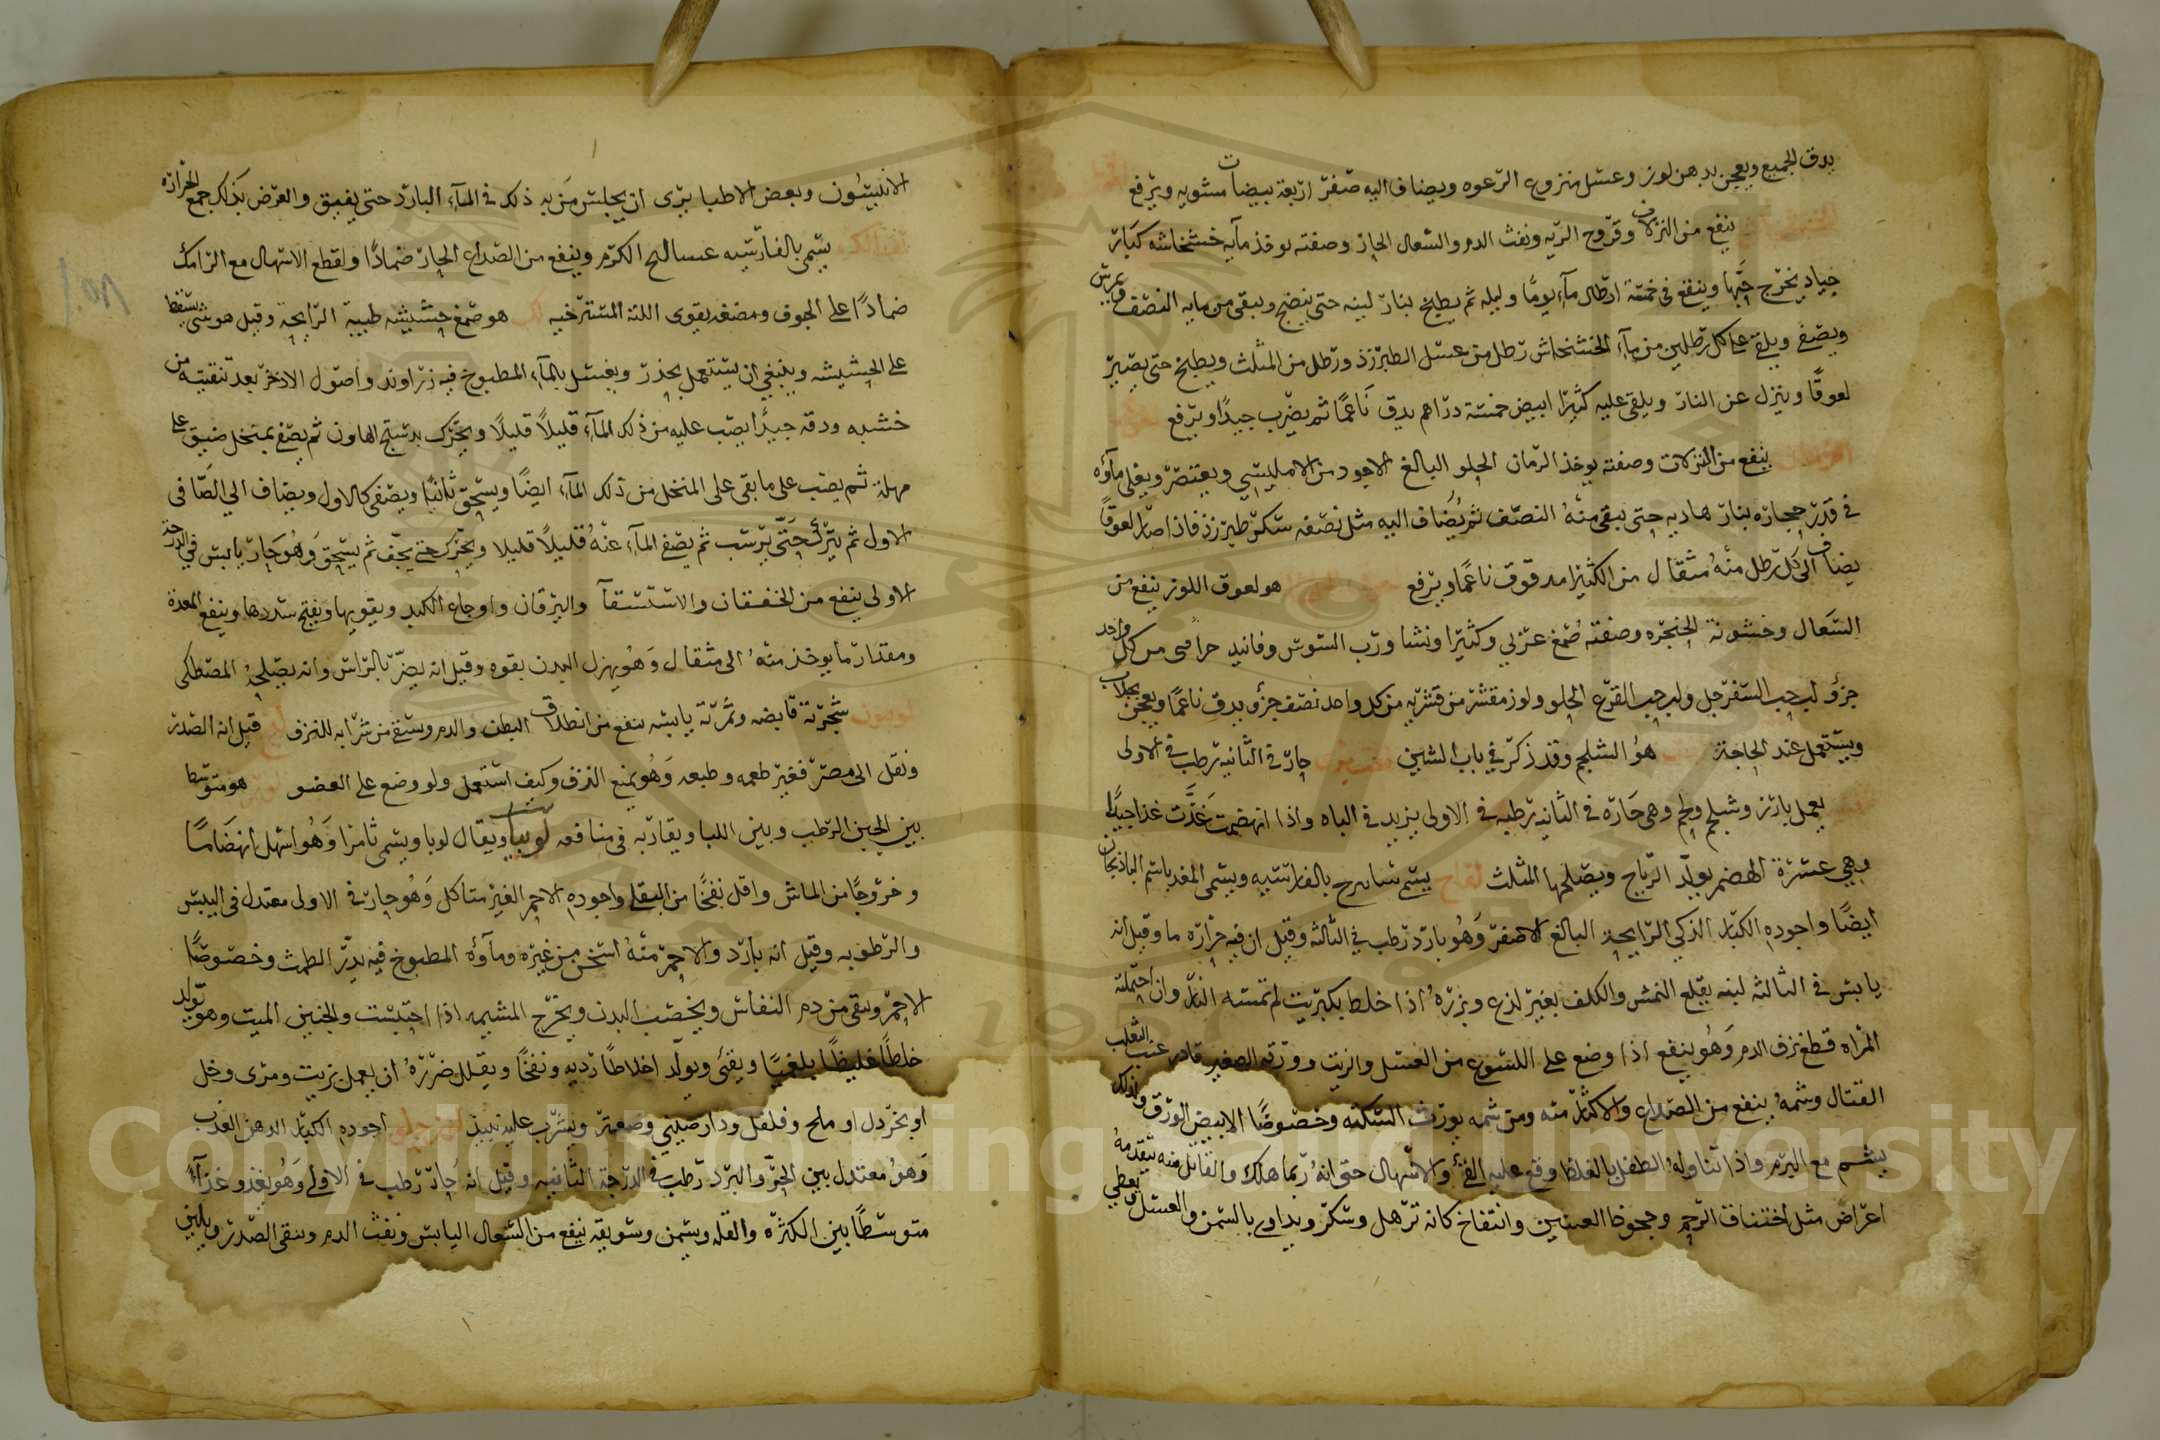 يدق الجميع ويعجن بدهن لوز وعسل منزوع الرغوه ويضاف اليه صفر اربعة بيضات مشويه ويرفع
ينفع من النزلات وقروح الريه ونفث الدم والسعال الحار وصفته يوخذ مايه خشخاشه كبار
جياد يخرج حبها وينقع في خمسة ارطال مآء يوما وليله ثم يطبخ بنار لينه حتى ينضج ويبقى من مايه النصف ويمرس
ويصفى ويلقى على كل رطلين من مآء الخشخاش رطل من عسل الطبرزذ ورطل من المثلث ويطبخ حتى يصير
لعوقا وينزل عن النار ويلقى عليه كثيرا ابيض خمسة دراهم يدق ناعما ثم يضرب جيدا ويرفع
ينفع من النزلات وصفته يوخذ الرمان الحلو البالغ الاجود من الامليسي ويعتصر ويغلى مآوه
في قدر حجاره بنار هاديه حتى يبقى منه النصف ثم يضاف اليه مثل نصفه سكر طبرزذ فاذا صار لعوقا
يضاف الى كل رطل منه مثقال من الكثيرا مدقوق ناعما ويرفع هو لعوق اللوز ينفع من
السعال وخشونة الحنجره وصفته صمغ عربي وكثيرا ونشا ورب السوس وفانيد من كل واحد
جزؤ لب حب السفرجل ولب حب القرع الحلو ولوز مقشر من قشريه من كل واحد نصف جزؤ يدق ناعما ويعجن بجلاب
ويستعمل عند الحاجة هو الشلجم وقد ذكر في باب الشين حار في الثانيه رطب في الاولى
يعمل بارز وشلجم ولحم وهي حاره في الثانيه رطبه في الاولى يزيد في الباه واذا انهضمت غذت غذا جيدا
وهي عسرة الهضم يولد الرياح ويصلحها المثلث لفاح يسمى بالفارسيه ويسمى المغد باسم الباذنجان
ايضا واجوده الكبار الذكي الرايحة البالغ الاصفر وهو بارد رطب في الثالثه وقيل ان فيه حراره ما وقيل انه
يابس في الثالثه لبنه يقلع النمش والكلف بغير لذع وبزره اذا خلط بكبريت لم تمسه النار وان احتملته
المراه قطع نزف الدم وهو ينفع اذا وضع على اللسوع من العسل والزيت وورقه الصغير عنب الثعلب
القتال وشمه ينفع من الصداع والاكثار منه ومن شمه يورث السكته وخصوصا الابيض الورق ولذلك
يشم مع اليرم واذا تناوله الطفل بالغلط وقع عليه القئ والاسهال حتى انه ربما هلك والقاتل منه يتقدمه
اعراض مثل اختناق الرحم وجحوظ العينين وانتفاخ كانه ترهل وسكر ويداوى بالسمن والعسل ويعطي
الانيسون وبعض الاطبا يرى ان يجلس من به ذلك في المآء البارد حتى يفيق والغرض بذلك جمع الحراره
يسمى بالفارسيه الكرم وينفع من الصداع الحار ضمادا ولقطع الاسهال مع الرامك
ضمادا على الجوف ومضغه يقوي اللثه المسترخيه هو صمغ حشيشه طيبة الرايحه وقيل هو شي يسقط
على الحشيشه وينبغي ان يستعمل بحذر ويغسل بالمآء المطبوخ فيه زراوند واصول الاذخر بعد تنقيته من
خشبه ودقه جيدا يصب عليه من ذلك المآء قليلا قليلا ويحرك بدستج الهاون ثم يصفى بمنخل ضيق على
مهلة ثم يصب على ما بقى على المنخل من ذلك المآء ايضا ويسحق ثانيا ويصفى كالاول ويضاف الى الصافى
الاول ثم يترك حتى يرسب ثم يصفى المآء عنه قليلا قليلا ويحرك حتى يجف ثم يسحق وهو حار يابس في الدرجة
الاولى ينفع من الخفقان والاستسقآ واليرقان واوجاع الكبد ويقويها ويفتح سددها وينفع المعدة
ومقدار ما يوخذ منه الى مثقال وهو يهزل البدن بقوه وقيل انه يضر بالراس وانه يصلحه المصطكى
شجرته قابضه وثمرته يابسه ينفع من انطلاق البطن والدم وسقى من شرابه للنزف قيل انه السدر
ونقل الى مصر فغير طعمه وطبعه وهو يمنع النزف وكيف استعمل ولو وضع على العضو هو متوسط
بين الجبن الرطب وبين اللبا ويقاربه في منافعه لوبيا ويقال لوبا ويسمى ثامرا وهو اسهل انهضاما
وخروجا من الماش واقل نفخا من الباقلى واجوده الاحمر الغير متاكل وهو حار في الاولى معتدل في اليبس
والرطوبه وقيل انه بارد والاحمر منه اسخن من غيره ومآوه المطبوخ فيه يدر الطمث وخصوصا
الاحمر وينقى من دم النفاس ويخصب البدن ويخرج المشيمه اذا احتبست والجنين الميت وهو يولد
خلطا غليظا بلغميا ويغثي ويولد اخلاطا رديه ونفخا ويقلل ضرره ان يعمل بزيت ومرى وخل
او بخردل او ملح وفلفل ودارصيني وصعتر ويشرب عليه نبيذ اجوده الكبار الدهن العذب
وهو معتدل بين الحر والبرد رطب في الدرجة الثانيه وقيل انه حار رطب في الاولى وهو يغذو غذآء
متوسطا بين الكثره والقله ويسمن وسويقه ينفع من السعال اليابس ونفث الدم وينقى الصدر ويلين
Copyright © King Saud University